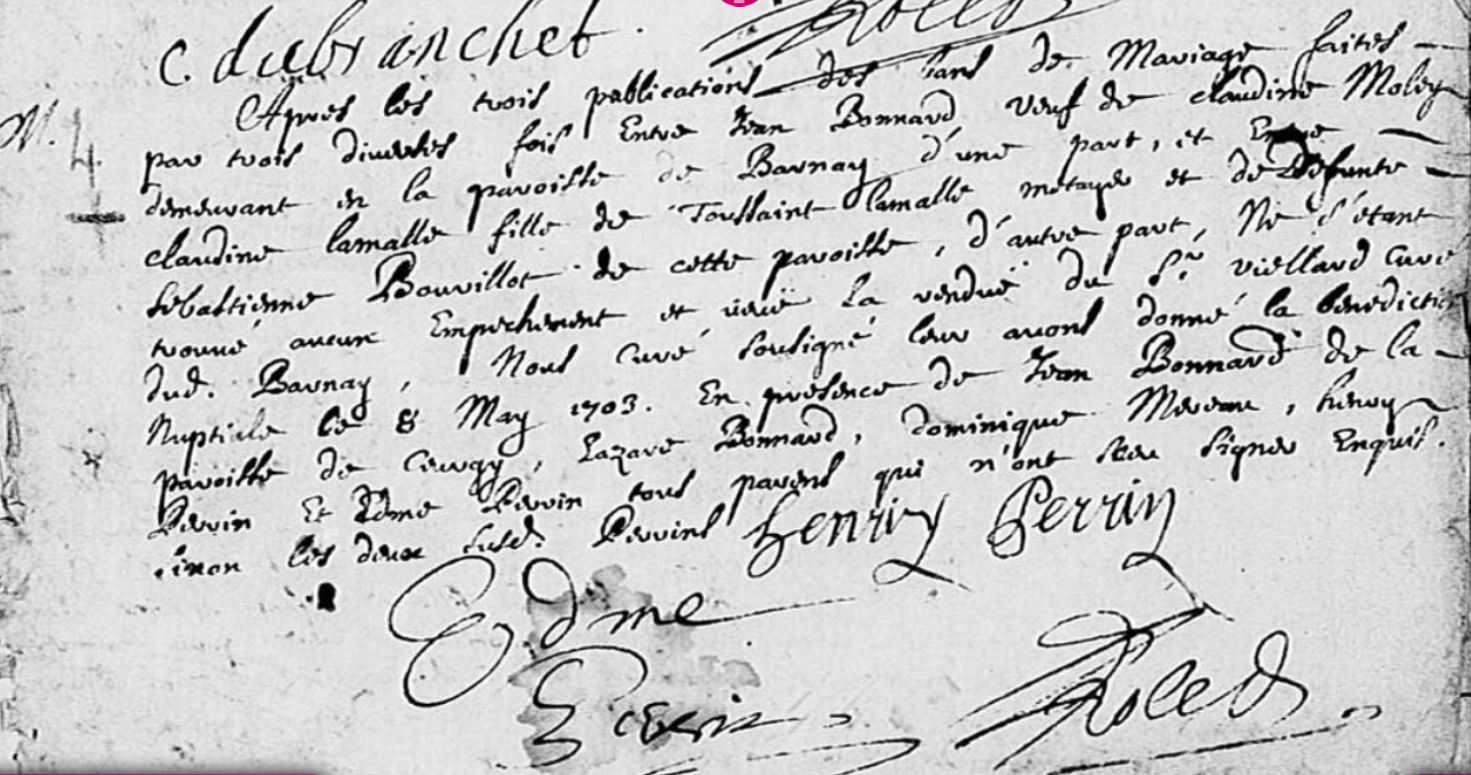 c. dubranchet.
Apres les trois publications des bans de Mariage faites
M. 4.
par trois diverses fois Entre Jean Bonnard veuf de claudine Moley
demeurant en la paroisse de Barnay d'une part, et Entre
claudine lamalle fille de Toussaint lamalle metayer et de Defunte
sebastienne Bouvillot de cette paroisse, d'autre part, Ne s'étant
trouué aucun Empechement et veüe la rendüe du Sr. viellard Curé
dud. Barnay, Nous Curé sousigné leur avons donné la benediction
Nuptiale le 8 May 1703. En presence de Jean Bonnard de la
paroisse de Ceurgy, Lazare Bonnard, dominique Mereau, henry
Perrin Et Edme Perrin tous parens qui n'ont sceu signer Enquis.
sinon les deux susd. Perrins henriy Perrin
Edme
Perrin